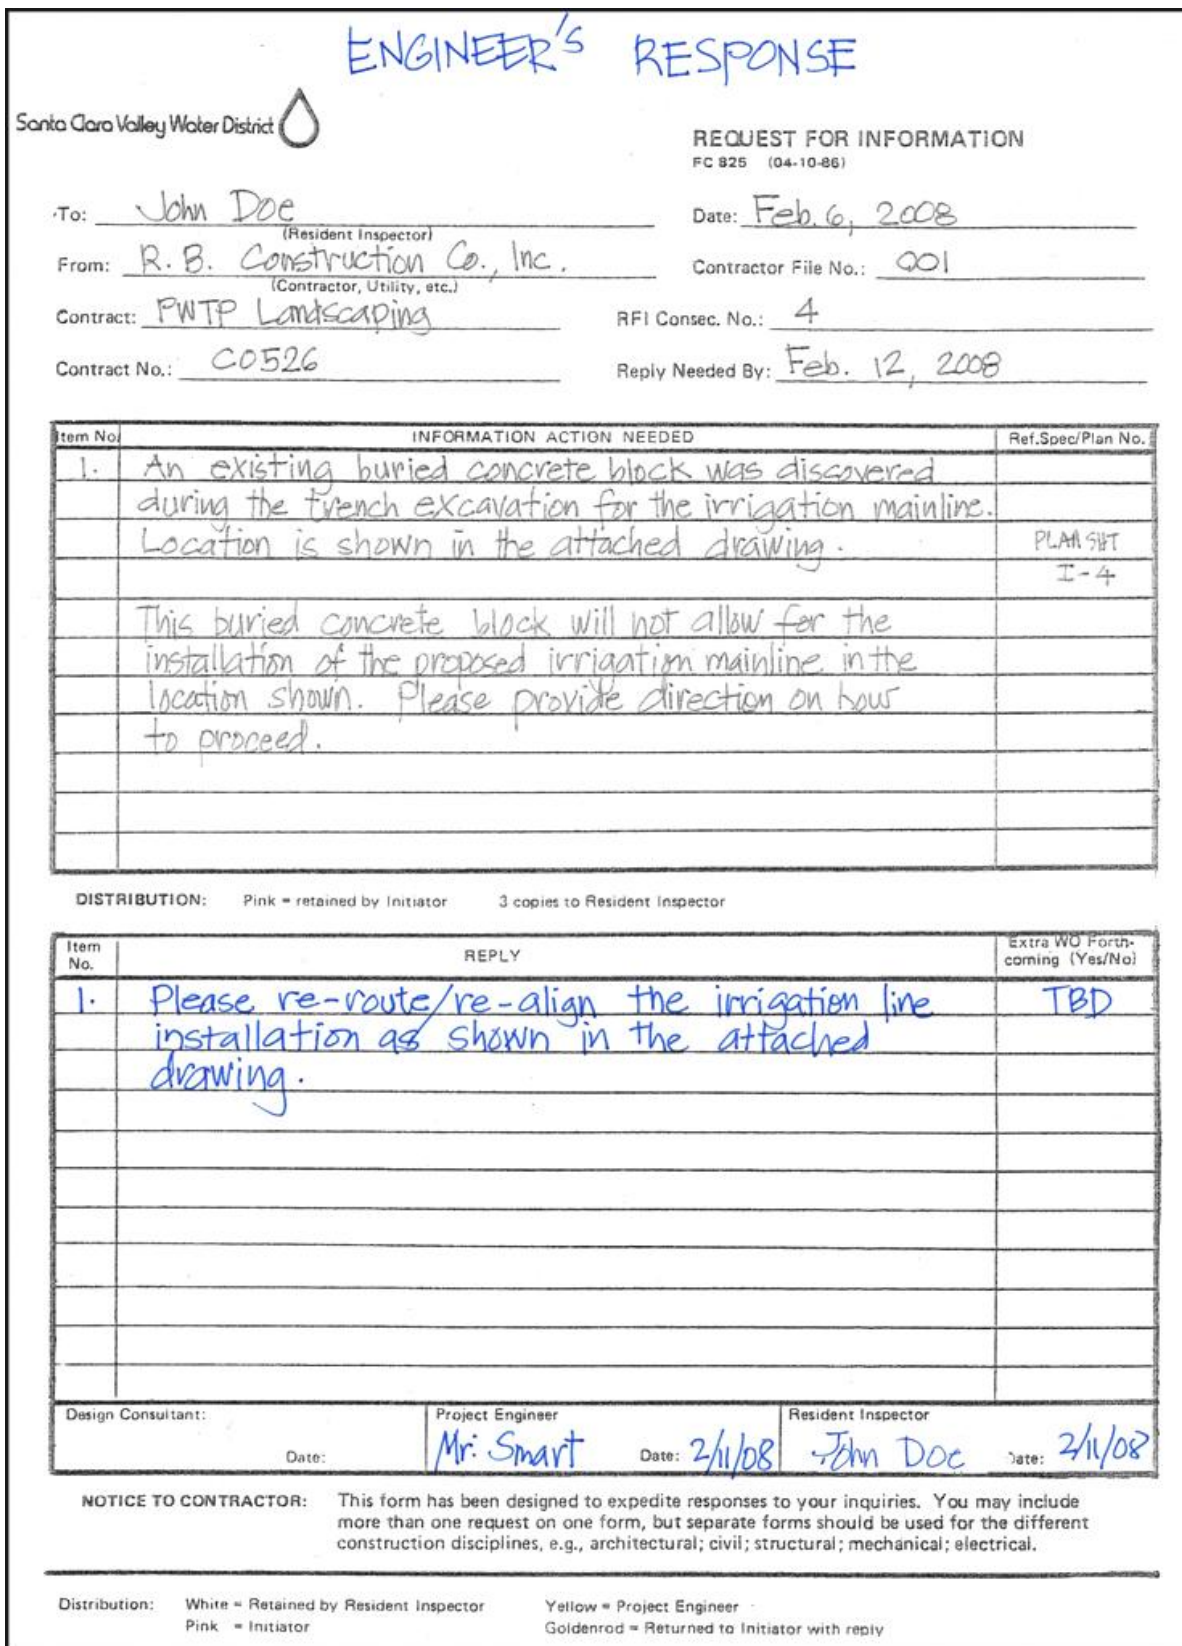 ENGINEER'S RESPONSE
Santa Clara Valley Water District
REQUEST FOR INFORMATION
FC 825 (04-10-86)
To: John Doe
(Resident Inspector)
Date: Feb. 6, 2008
From: R. B. Construction Co., Inc.
(Contractor, Utility, etc.)
Contractor File No.: 001
Contract: PWTP Landscaping
RFI Consec. No.: 4
Contract No.: C0526
Reply Needed By: Feb. 12, 2008
Item No. INFORMATION ACTION NEEDED Ref.Spec/Plan No.
1. An existing buried concrete block was discovered
during the trench excavation for the irrigation mainline.
Location is shown in the attached drawing. PLAN SHT
I-4
This buried concrete block will not allow for the
installation of the proposed irrigation mainline in the
location shown. Please provide direction on how
to proceed.
DISTRIBUTION: Pink = retained by Initiator 3 copies to Resident Inspector
Item No. REPLY Extra WO Forth-
coming (Yes/No)
1. Please re-route/re-align the irrigation line TBD
installation as shown in the attached
drawing.
Design Consultant: Project Engineer Resident Inspector
Date: Mr. Smart Date: 2/11/08 John Doe Date: 2/11/08
NOTICE TO CONTRACTOR: This form has been designed to expedite responses to your inquiries. You may include
more than one request on one form, but separate forms should be used for the different
construction disciplines, e.g., architectural; civil; structural; mechanical; electrical.
Distribution: White = Retained by Resident Inspector Yellow = Project Engineer
Pink = Initiator Goldenrod = Returned to Initiator with reply